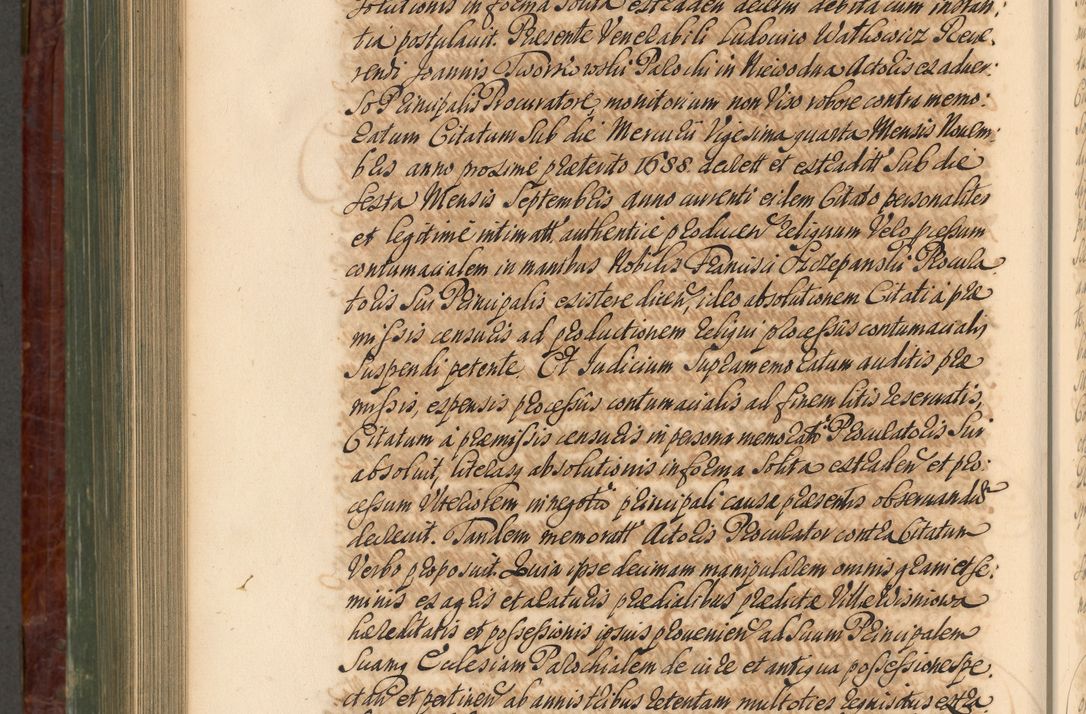 solutionis in forma solita extraden decerni debita cum instan:
tia postulavit. Præsente Venerabili Ludovico Watkowicz Reve:
rendi Joannis Tworkowski Parochi in Niewodna Actoris ex adver:
so Principalis Procuratore, monitorium non viso robore contra memo:
ratum Citatum sub die Mercurii Vigesima quarta Mensis Novem:
bris anno proxime præterito 1688 decrett et extraditt sub die
sexta Mensis Septembris anno currenti eidem Citato personaliter
et legitimè intimatt authenticè producen reliquum Velo pressum
contumacialem in manibus Nobilis Francisci Szczepanski Procura
toris sui Principalis existere dicen, ideo absolutionem Citati à præ
missis censuris ad productionem reliqui processus contumacialis
suspendi petente. Et Judicium supramemoratum auditis præ
missis, expensis processus contumacialis ad finem litis reservatis,
Citatum à præmissis censuris in persona memorati Procuratoris sui
absolvit, literasq absolutionis in forma solita extraden et pro:
cessum ulteriorem in negotio principali causæ præsentis observandum
decrevit. Tandem memoratt Actoris Procurator contra Citatum
Verbo proposuit. Quia ipse decimam manipularem omnis grani et se:
minis ex agris et araturis prædialibus prædictæ Villæ Wisniowa
hæreditatis et possessionis ipsius provenien ad suum Principalem
suamq Ecclesiam Parochialem de iure et antiqua possessione spe:
ctan et pertinen ab annis tribus retentam multoties requisitus extra